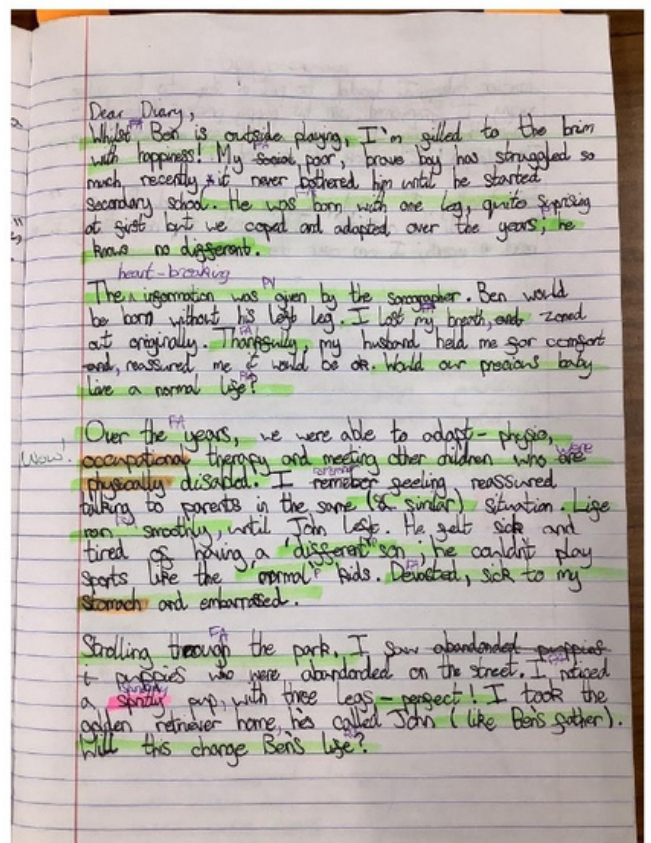 Dear Diary,
Whilst Ben is outside playing, I'm filled to the brim
with happiness! My social, poor, brave boy has struggled so
much recently, it never bothered him until he started
secondary school. He was born with one leg, quite suprising
at first but we coped and adapted, over the years; he
knows no different.
heart-breaking
The information was given by the sonographer. Ben would
be born without his left leg. I lost my breath, and zoned
out originally. Thankfully, my husband held me for comfort
and, reassured me it would be ok. Would our precious baby
live a normal life?
Over the years, we were able to adapt - physio,
Wow! occupational therapy and meeting other children who are were
physically disabled. I remeber feeling reassured
talking to parents in the same (& similar) situation. Life
ran smoothly, until John left. He felt sick and
tired of having a 'different' son; he couldn't play
sports like the 'normal' kids. Devasted, sick to my
stomach and embarrased.
Strolling through the park, I saw abandonded puppies
puppies who were abandonded on the street. I noticed
a pup, with three legs - perfect! I took the
golden retriever home, he's called John (like Ben's father).
Will this change Ben's life?